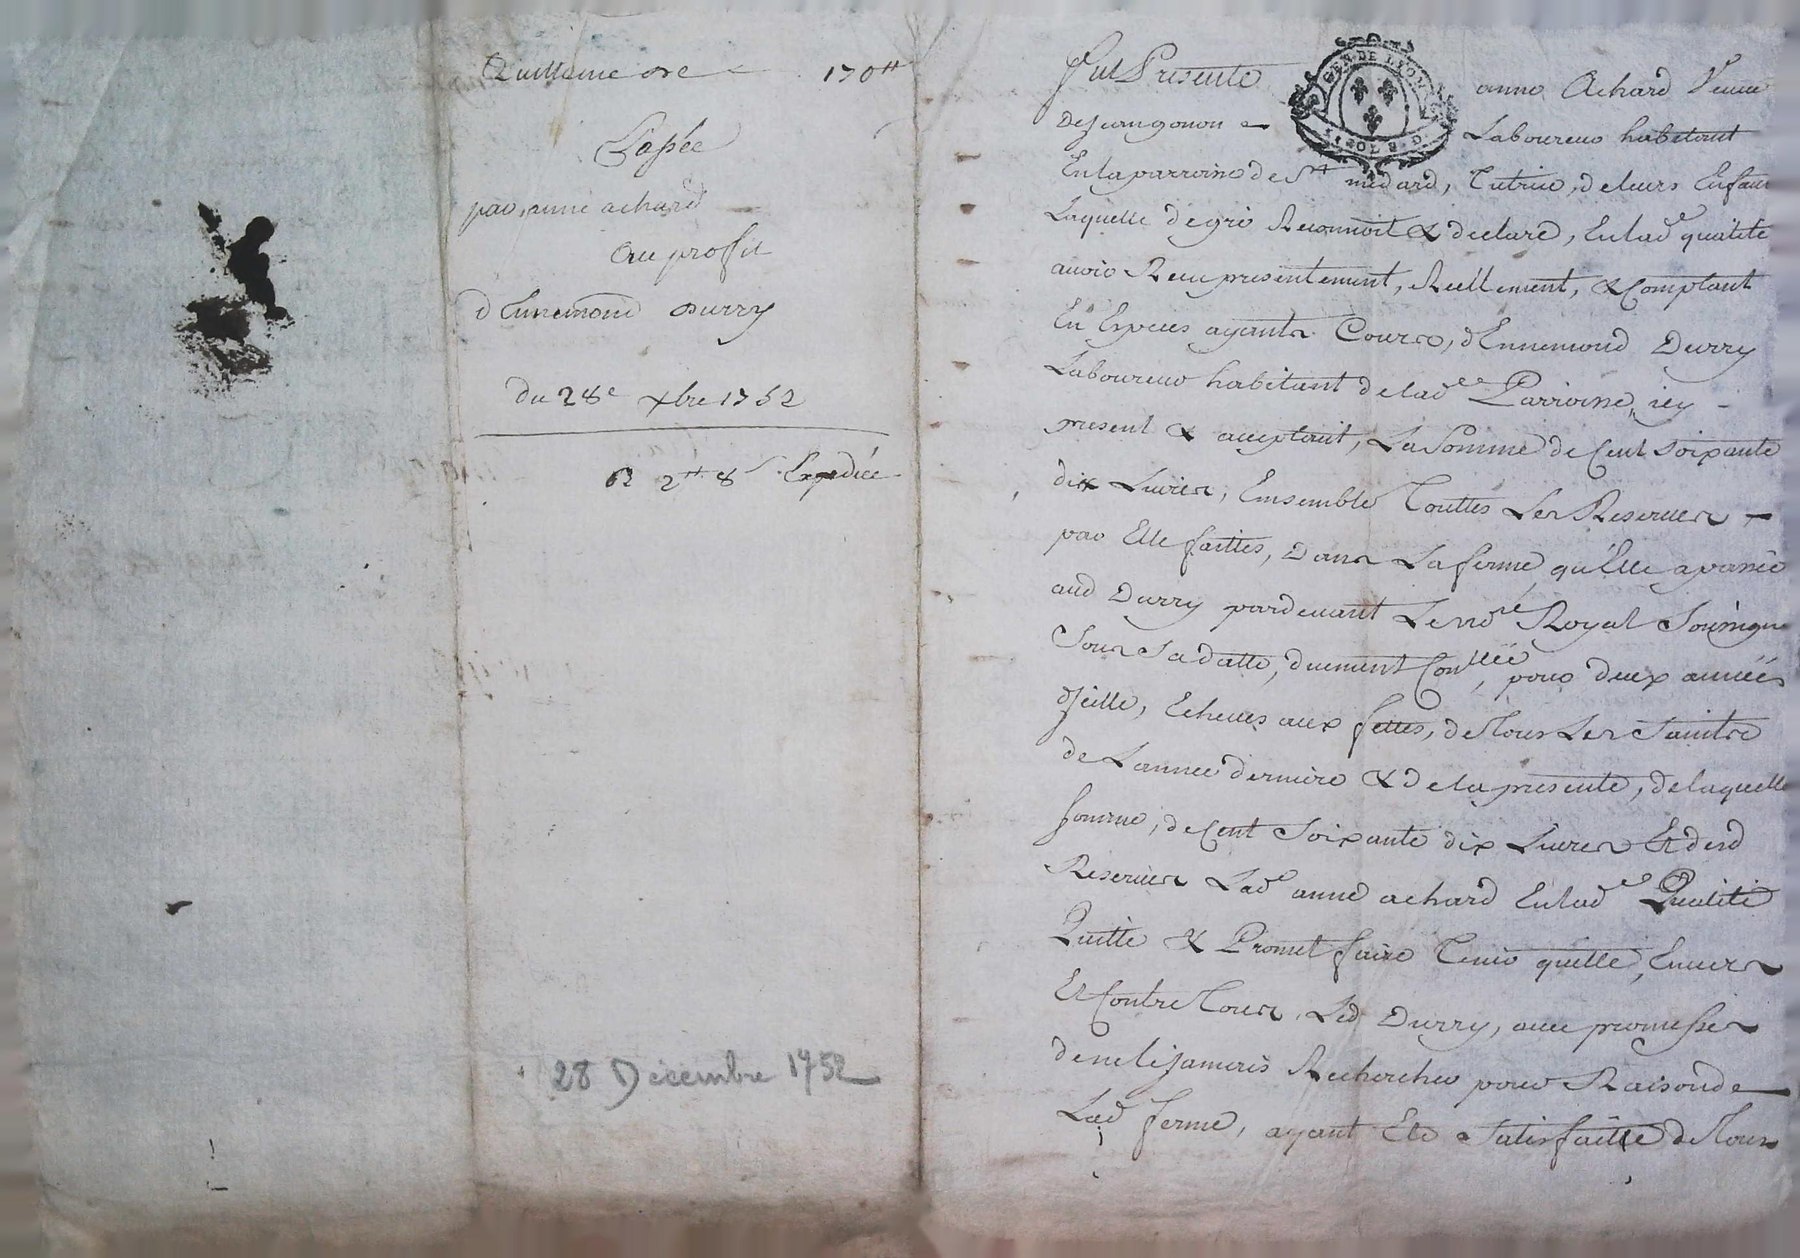 Quittance de 170 ₶
Passée
par anne achard
Au proffit
d'Ennemond Durry
du 28e xbre 1752
R 2₶ 8 s Expediée
28 Décembre 1752
Fut Presente anne Achard Veuve
GEN. DE LYON
de jean gonon Laboureur habitant
En la parroisse de St medard, Tutrice, de leurs Enfans
Laquelle de gré Reconnoit & declare, En lade qualité
avoir Receu presentement, Reellement, & Comptant
En Especes ayants Cours, d'Ennemond Durry
Laboureur habitant de lade Parroisse, icy
present & acceptant, La Somme de Cent soixante
dix Livres, Ensemble Touttes Les Reserves
par Elle faittes, Dans La ferme, qu'Elle a passée
aud Durry pardevant Le nore Royal Soussigné
Sous Sa datte, duement Conllée, pour deux années
d'jcille, Echeues aux fettes, de Tous Les Saints
de L'année derniere & de la presente, de laquelle
somme, de Cent Soixante dix Livres Et desd
Reserves Lade anne achard En lade Qualité
Quitte & Promet faire Tenir quitte, Envers
Et Contre Tous, Led Durry, avec promesses
de ne le jamais Rechercher pour Raison de
Lad ferme, ayant Eté Satisfaitte de Tous